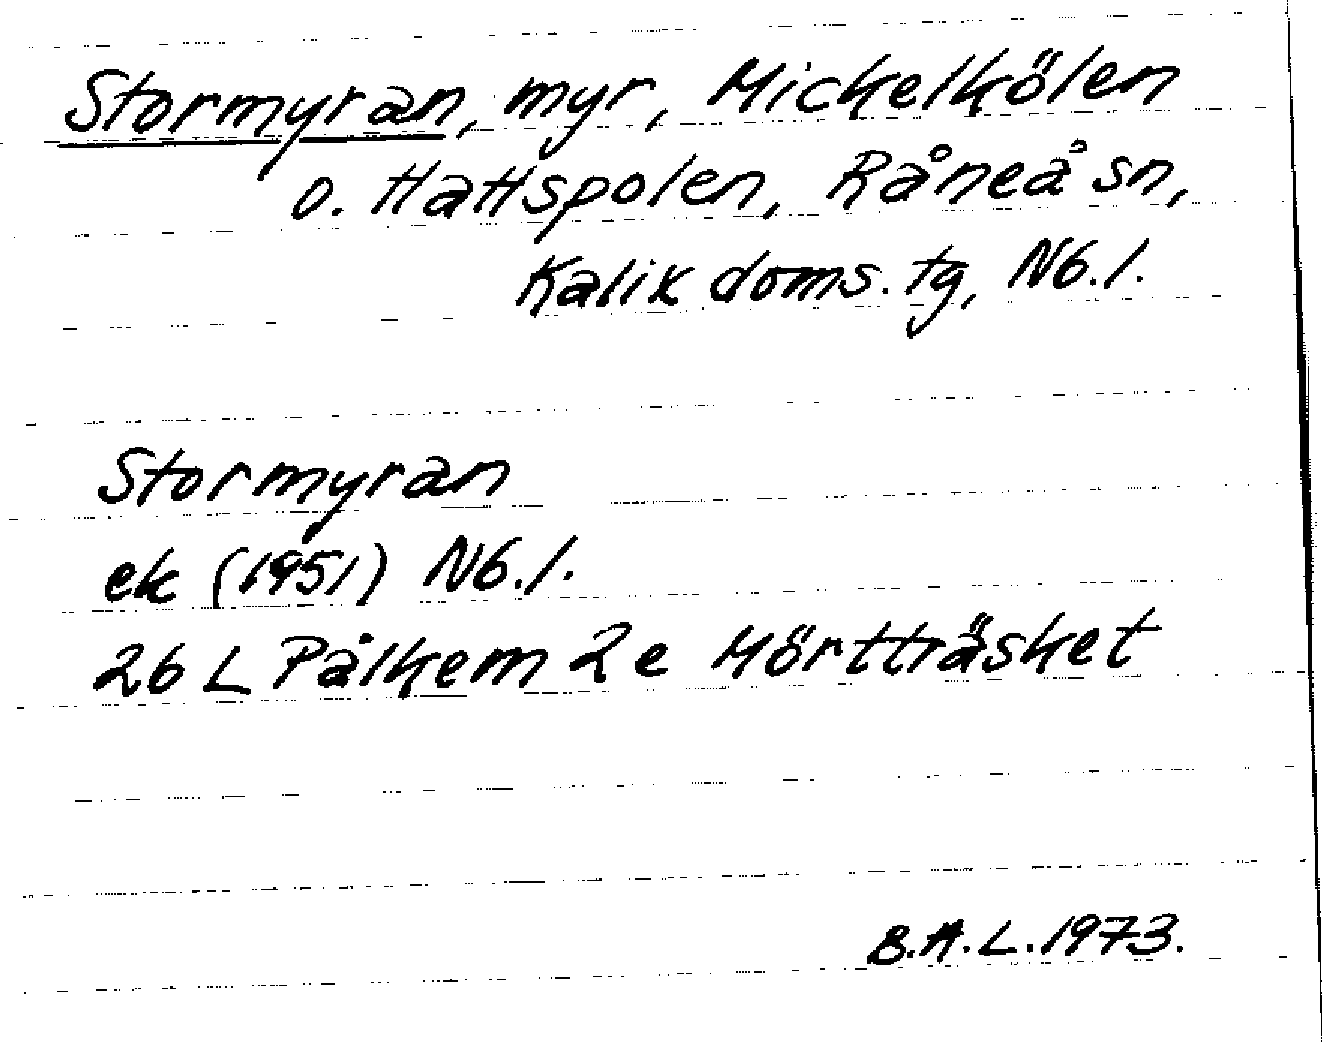 Stormyran, myr, Mickelkölen
o. Hattspolen, Råneå sn,
Kalix doms. tg, Nb. l.
Stormyran
ek (1951) Nb. l.
26 L Pålkem 2e Mörtträsket
B.A.L. 1973.